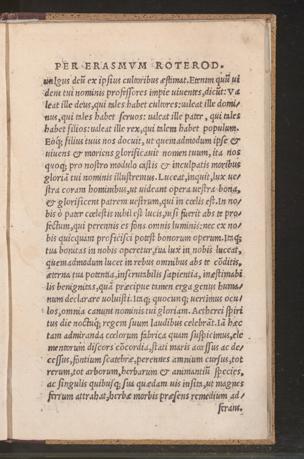 PER ERASMVM ROTEROD.
uulgus deũ ex ipsius cultoribus æstimat. Etenim quũ ui
dent tui nominis professores impie uiuentes, dicũt: Va
leat ille deus, qui tales habet cultores: ualeat ille domi/
nus, qui tales habet seruos: ualeat ille pater, qui tales
habet filios: ualeat ille rex, qui talem habet populum.
Eóq; filius tuus nos docuit, ut quemadmodum ipse &
uiuens & moriens glorificauit nomen tuum, ita nos
quoq; pro nostro modulo castis & inculpatis moribus
gloriã tui nominis illustremus. Luceat, inquit, lux ue/
stra coram hominibus, ut uideant opera uestra bona,
& glorificent patrem uestrum, qui in cœlis est. In no/
bis ò pater cœlestis nihil est lucis, nisi fuerit abs te pro/
fectum, qui perennis es fons omnis luminis: nec ex no/
bis quicquam proficisci potest bonorum operum. Itaq;
tua bonitas in nobis operetur, tua lux in nobis luceat,
quemadmodum lucet in rebus omnibus abs te cõditis,
æterna tua potentia, inscrutabilis sapientia, inæstimabi
lis benignitas, quã præcipue tamen erga genus huma/
num declarare uoluisti. Itaq; quocunq; uertimus ocu/
los, omnia canunt nominis tui gloriam. Aetherei spiri
tus die noctuq; regem suum laudibus celebrãt. Iã hæc
tam admiranda cœlorum fabrica quam suspicimus, ele
mentorum discors cõcordia, stati maris accessus ac de/
cessus, fontium scatebræ, perennes amnium cursus, tot
rerum, tot arborum, herbarum & animantiũ species,
ac singulis quibusq; sua quædam uis insita, ut magnes
ferrum attrahat, herbæ morbis præsens remedium ad/
ferant.